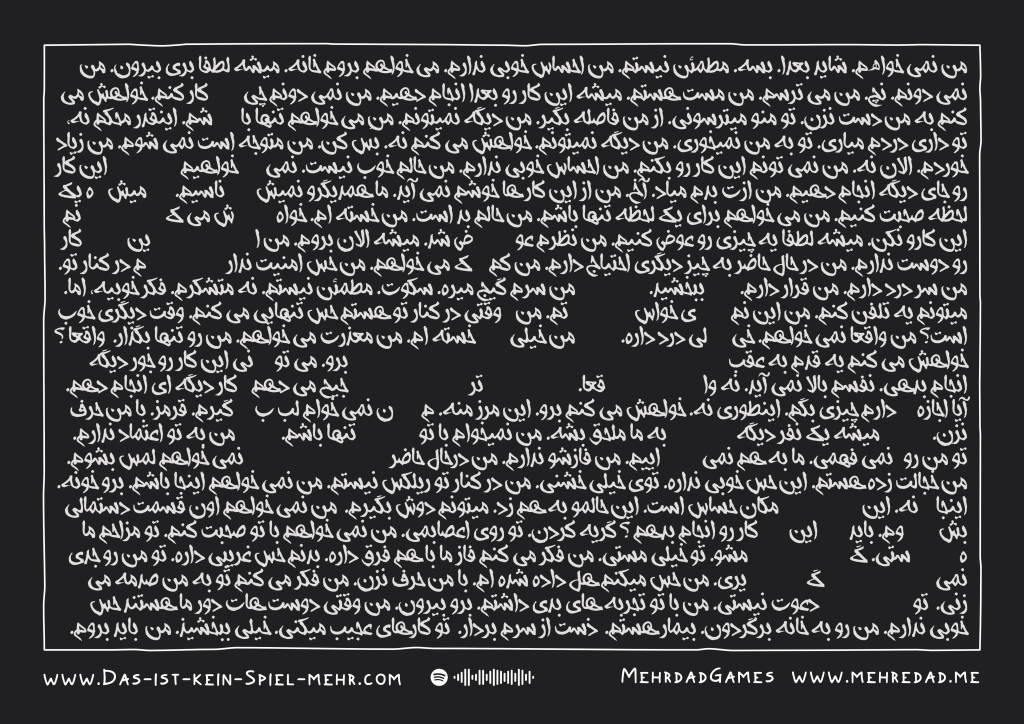 من نمی خواهم. شاید بعدا. بسه. مطمئن نیستم. من احساس خوبی ندارم. می خواهم بروم خانه. میشه لطفا بری بیرون. من
نمی دونم. نچ. من می ترسم. من مست هستم. میشه این کار رو بعدا انجام دهیم. من نمی دونم چی کار کنم. خواهش می
کنم به من دست نزن. تو منو میترسونی. از من فاصله بگیر. من دیگه نمیتونم. من می خواهم تنها با شم. اینقدر محکم نه.
تو داری دردم میاری. تو به من نمیخوری. من دیگه نمیتونم. خواهش می کنم نه. بس کن. من متوجه است نمی شوم. من زیاد
خوردم. الان نه. من نمی تونم این کار رو بکنم. من احساس خوبی ندارم. من حالم خوب نیست. نمی خواهیم این کار
رو جای دیگه انجام دهیم. من ازت بدم میاد. آخ. من از این کارها خوشم نمی آید. ما همدیگرو نمیش ناسیم. میش ه یک
لحظه صحبت کنیم. من می خواهم برای یک لحظه تنها باشم. من حالم بد است. من خسته ام. خواه ش می ک نم
این کارو نکن. میشه لطفا یه چیزی رو عوض کنیم. من نظرم عو ض شد. میشه الان بروم. من ا ین کار
رو دوست ندارم. من در حال حاضر به چیز دیگری احتیاج دارم. من کم ک می خواهم. من حس امنیت ندار م در کنار تو.
من سر درد دارم. من قرار دارم. ببخشید. من سرم گیج میره. سکوت. مطمئن نیستم. نه متشکرم. فکر خوبیه. اما.
میتونم یه تلفن کنم. من این نم ی خواس تم. من وقتی در کنار تو هستم حس تنهایی می کنم. وقت دیگری خوب
است؟ من واقعا نمی خواهم. خی لی درد داره. من خیلی خسته ام. من معذرت می خواهم. من رو تنها بگذار. واقعا؟
خواهش می کنم یه قدم به عقب برو. می تو نی این کار رو جور دیگه
انجام بدهی. نفسم بالا نمی آید. نه وا قعا. تر جیح می دهم کار دیگه ای انجام دهم.
آیا اجازه دارم چیزی بگم. اینطوری نه. خواهش می کنم برو. این مرز منه. م ن نمی خوام لب ب گیرم. قرمز. با من حرف
نزن. میشه یک نفر دیگه به ما ملحق بشه. من نمیخوام با تو تنها باشم. من به تو اعتماد ندارم.
تو من رو نمی فهمی. ما به هم نمی اییم. من فازشو ندارم. من درحال حاضر نمی خواهم لمس بشوم.
من خجالت زده هستم. این حس خوبی نداره. توی خیلی خشنی. من در کنار تو ریلکس نیستم. من نمی خواهم اینجا باشم. برو خونه.
اینجا نه. این مکان حساس است. این حالمو به هم زد. میتونم دوش بگیرم. من نمی خواهم اون قسمت دستمالی
بش وم. باید این کار رو انجام بدهم؟ گریه کردن. تو روی اعصابمی. من نمی خواهم با تو صحبت کنم. تو مزاحم ما
ه ستی. گ مشو. تو خیلی مستی. من فکر می کنم فاز ما با هم فرق داره. بدنم حس غریبی داره. تو من رو جدی
نمی گ یری. من حس میکنم هل داده شده ام. با من حرف نزن. من فکر می کنم تو به من صدمه می
زنی. تو دعوت نیستی. من با تو تجربه های بدی داشتم. برو بیرون. من وقتی دوست هات دور ما هستند حس
خوبی ندارم. من رو به خانه برگردون. بیمار هستم. دست از سرم بردار. تو کارهای عجیب میکنی. خیلی ببخشید. من باید بروم.
www.Das-ist-kein-Spiel-mehr.com MehrdadGames www.mehredad.me